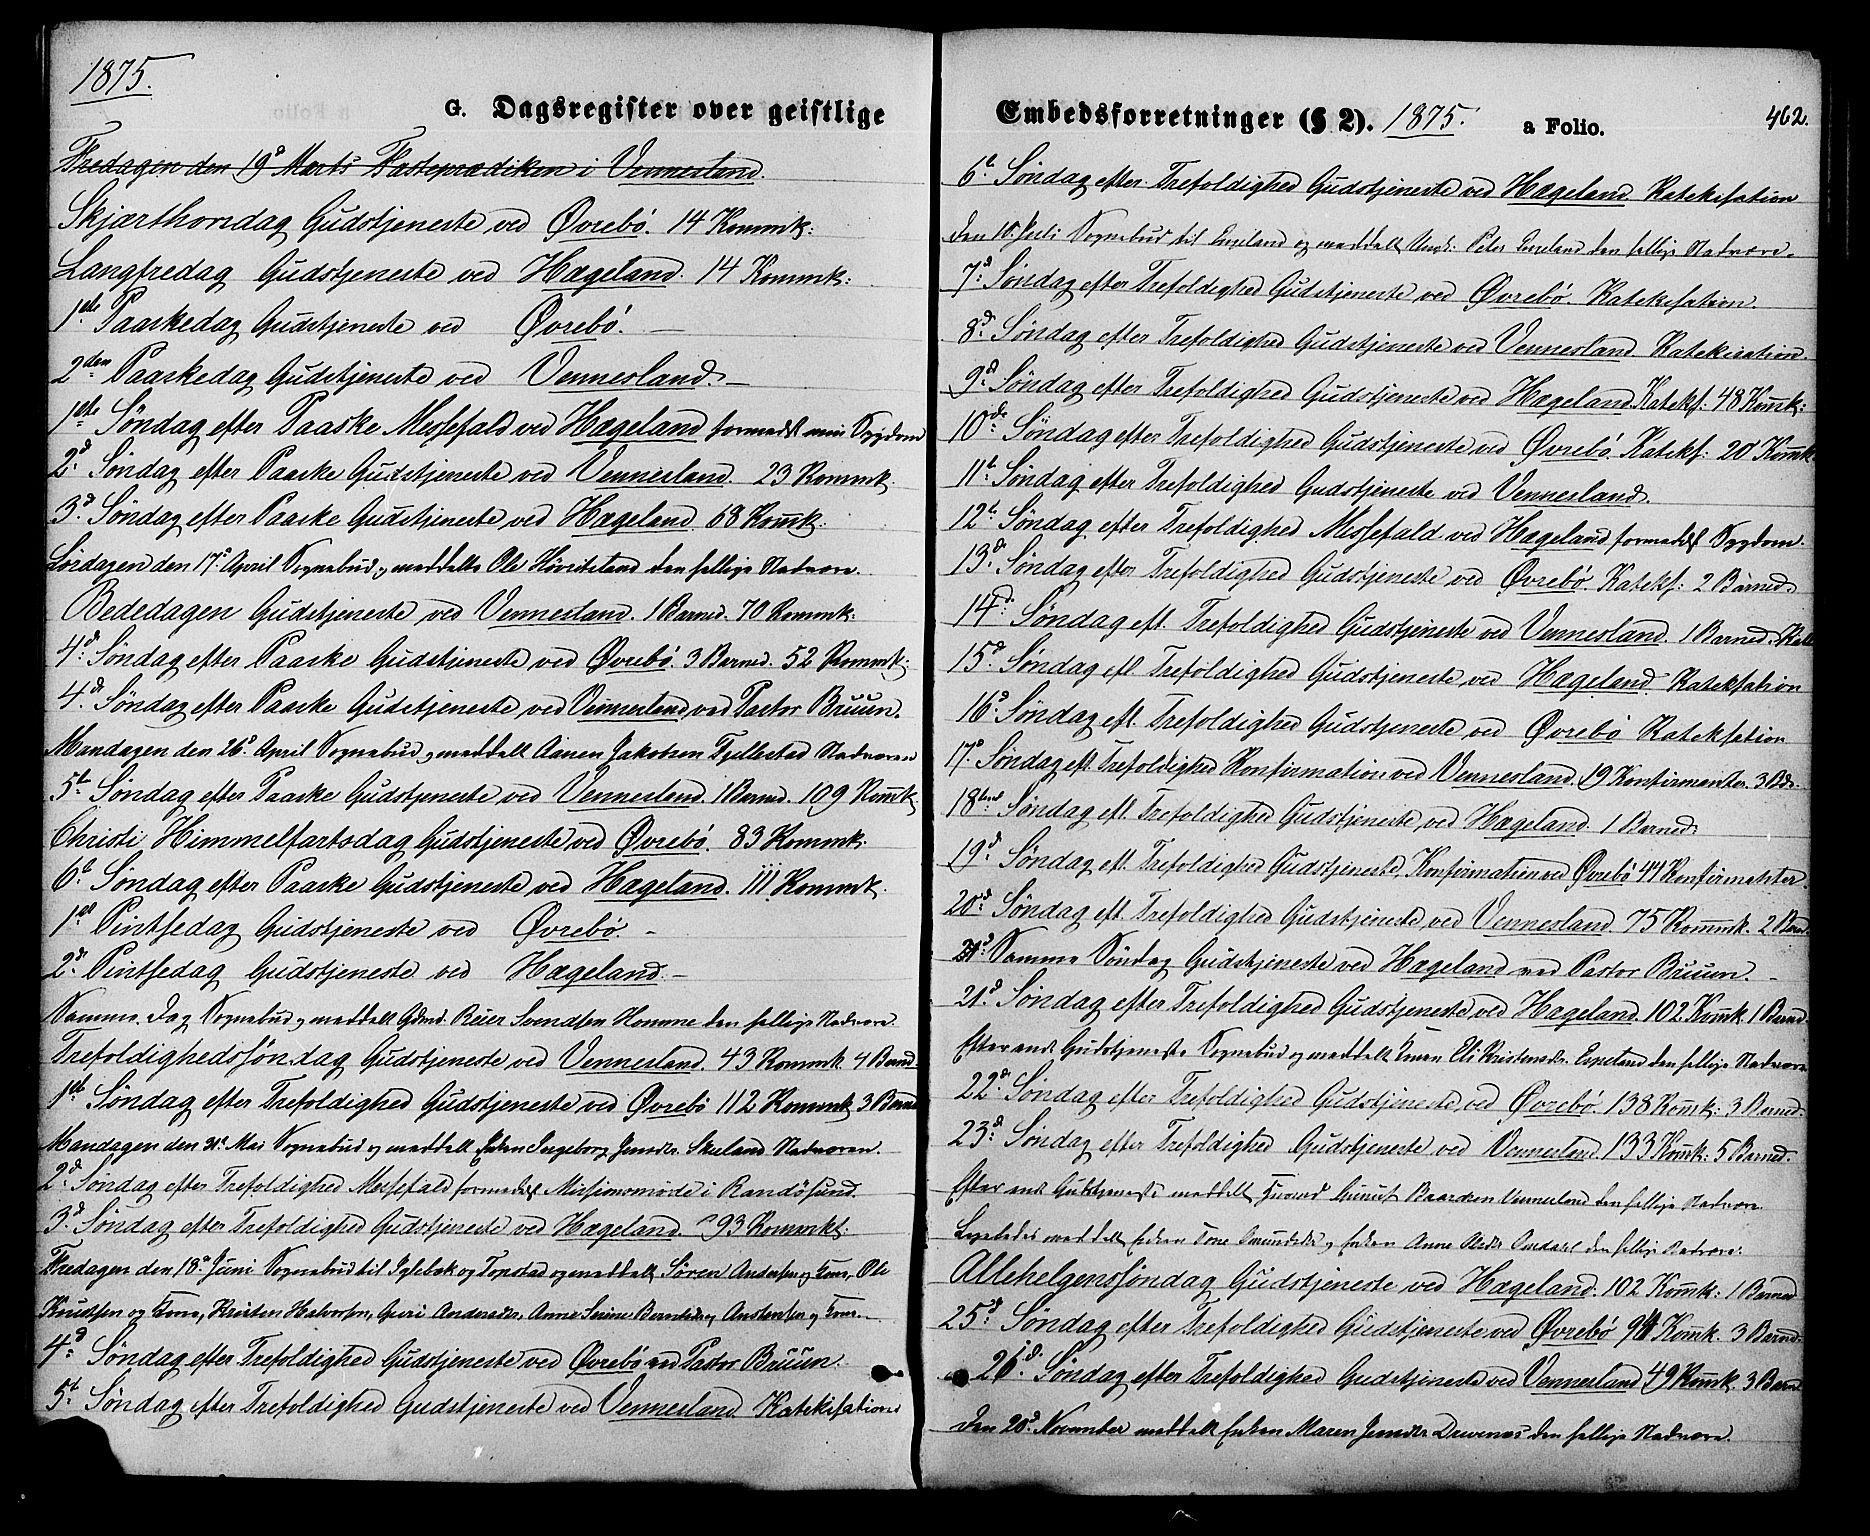 1875.
G. Dagsregister over geistlige
Fredagen den 19d Marts Fasteprædiken i Vennesland.
Skjærthorsdag Gudstjeneste ved Øvrebö. 14 Kommk:
Langfredag Gudstjeneste ved Hægeland. 14 Kommk:
1ste Paaskedag Gudstjeneste ved Øvrebö. —
2den Paaskedag Gudstjeneste ved Vennesland. —
1ste Söndag efter Paaske Messefald ved Hægeland formedelst min Sygdom
2d Söndag efter Paaske Gudstjeneste ved Vennesland. 23 Kommk.
3d Söndag efter Paaske Gudstjeneste ved Hægeland. 68 Komk.
Lördagen den 17d April Sognebud og meddelte Ole den hellige Nadvere.
Bededagen Gudstjeneste ved Vennesland. 1 Barned. 70 Kommk:
4d Söndag efter Paaske Gudstjeneste ved Øvrebö 3 Barned. 52 Kommk:
4d Söndag efter Paaske Gudstjeneste ved Vennesland ved Pastor Bruun.
Mandagen den 26d April Sognebud og meddelt Aanen Jakobsen Fjellestad Nadveren
5t Söndag efter Paaske Gudstjeneste ved Vennesland. 1 Barned. 109 Komk.
Christi Himmelfartsdag Gudstjeneste ved Øvrebö. 83 Kommk.
6t Söndag efter Paaske Gudstjeneste ved Hægeland. 111 Kommk.
1st Pintsedag Gudstjeneste ved Øvrebö. -
2d Pintsedag Gudstjeneste ved Hægeland. -
Samme Dag Sognebud og meddelt Gdmd. Reier Svendsen Homme den hellige Nadvere.
Trefoldighedssöndag Gudstjeneste ved Vennesland. 43 Kommk. 4 Barned.
1st Söndag efter Trefoldighed Gudstjeneste ved Øvrebö 112 Kommk 3 Barned
Mandagen den 31t Mai Sognebud og meddelt Enken Ingeborg Jensdr. Skuland Nadveren.
2d Söndag efter Trefoldighed Messefald formedelst Missionsmöde i Randösund.
3d Söndag efter Trefoldighed Gudstjeneste ved Hægeland. 93 Kommkt.
Fredagen den 18d Juni Sognebud til Iglebæk og Topstad og meddelt Sören Andersen og Kone, Ole
Knudsen og Kone, Kristen Halvorsen, Guri Andersdr, Anne Serine Berntsdr og Anstensen og Kone.
4d Söndag efter Trefoldighed Gudstjeneste ved Øvrebö ved Pastor Bruun.
5t Söndag efter Trefoldighed Gudstjeneste ved Vennesland. Katekisation
Embedsforretninger (§ 2). 1875. a Folio. 462.
6t Söndag efter Trefoldighed Gudstjeneste ved Hægeland. Katekisation
Den 10. Juli Sognebud til Eneland og meddelt Peter Eneland den hellige Nadvere.
7d Söndag efter Trefoldighed Gudstjeneste ved Øvrebö. Katekisation.
8d Söndag efter Trefoldighed Gudstjeneste ved Vennesland Katekisation.
9d Söndag efter Trefoldighed Gudstjeneste ved Hægeland. Katekf: 48 Komk:
10de Söndag efter Trefoldighed Gudstjeneste ved Øvrebö. Katekf: 20 Komk
11t Söndag efter Trefoldighed Gudstjeneste ved Vennesland.
12t Söndag efter Trefoldighed Messefald ved Hægeland formedelst Sygdom.
13d Söndag efter Trefoldighed Gudstjeneste ved Øvrebö. Katekf: 2 Barned.
14d Söndag eft. Trefoldighed Gudstjeneste ved Vennesland. 1 Barned.
15d Söndag eft. Trefoldighed Gudstjeneste ved Hægeland Kateksation
16d Söndag eft. Trefoldighed Gudstjeneste ved Øvrebö Kateksation
17d Söndag eft. Trefoldighed Konfirmation ved Vennesland. 19 Konfirmenter. 3 Bd.
18tend Söndag eft. Trefoldighed Gudstjeneste ved Hægeland. 1 Barned.
19d Söndag eft. Trefoldighed Gudstjeneste, Konfirmation ved Øvrebö 44 Konfirmanter.
20d Söndag eft. Trefoldighed Gudstjeneste ved Vennesland. 75 Kommk. 2 Barned.
Samme Söndag Gudstjeneste ved Hægeland ved Pastor Bruun. -
21d Söndag efter Trefoldighed Gudstjeneste ved Hægeland. 102 Komk. 1 Barned.
Efter endt Gudstjeneste Sognebud og meddelt Eli Kristensdr. Espeland den hellige Nadvere
22d Söndag efter Trefoldighed Gudstjeneste ved Øvrebö. 138 Komk: 3 Barned.
23d Söndag efter Trefoldighed Gudstjeneste ved Vennesland. 133 Komk: 5 Barned.
Efter endt Gudstjeneste meddelt Gunuf Baardsen Vennesland den hellige Nadvere.
Ligeledes meddelt Enken Tone og Enken Anne den hellige Nadvere.
Allehelgenssöndag Gudstjeneste ved Hægeland. 102 Komk: 1 Barned
25d Söndag efter Trefoldighed Gudstjeneste ved Øvrebö 94 Komk. 3 Barned.
26d. Söndag efter Trefoldighed Gudstjeneste ved Vennesland 49 Komk. 3 Barned.
Den 20d November meddelt Enken Maren Jensdr Drivenæs den hellige Nadvere.